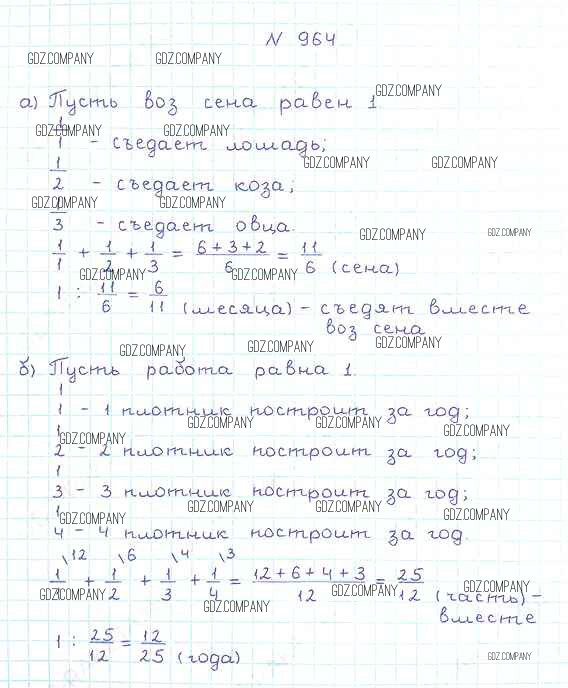 N 964
GDZ.COMPANY GDZ.COMPANY
GDZ.COMPANY
а) Пусть воз сена равен 1
GDZ.COMPANY GDZ.COMPANY
1/1 - съедает лошадь;
GDZ.COMPANY GDZ.COMPANY
1/2 - съедает коза;
GDZ.COMPANY GDZ.COMPANY
1/3 - съедает овца.
GDZ.COMPANY GDZ.COMPANY
1/1 + 1/2 + 1/3 = 6+3+2/6 = 11/6 (сена)
GDZ.COMPANY GDZ.COMPANY
1 : 11/6 = 6/11 (месяца) - съедят вместе
воз сена
GDZ.COMPANY GDZ.COMPANY GDZ.COMPANY
б) Пусть работа равна 1.
1/1 - 1 плотник построит за год;
GDZ.COMPANY GDZ.COMPANY GDZ.COMPANY GDZ.COMPANY
1/2 - 2 плотник построит за год;
1/3 - 3 плотник построит за год;
GDZ.COMPANY GDZ.COMPANY GDZ.COMPANY GDZ.COMPANY
1/4 - 4 плотник построит за год.
\12 \6 \4 \3
1/1 + 1/2 + 1/3 + 1/4 = 12+6+4+3/12 = 25/12 (часть) -
GDZ.COMPANY GDZ.COMPANY GDZ.COMPANY GDZ.COMPANY
вместе
1 : 25/12 = 12/25 (года)
GDZ.COMPANY